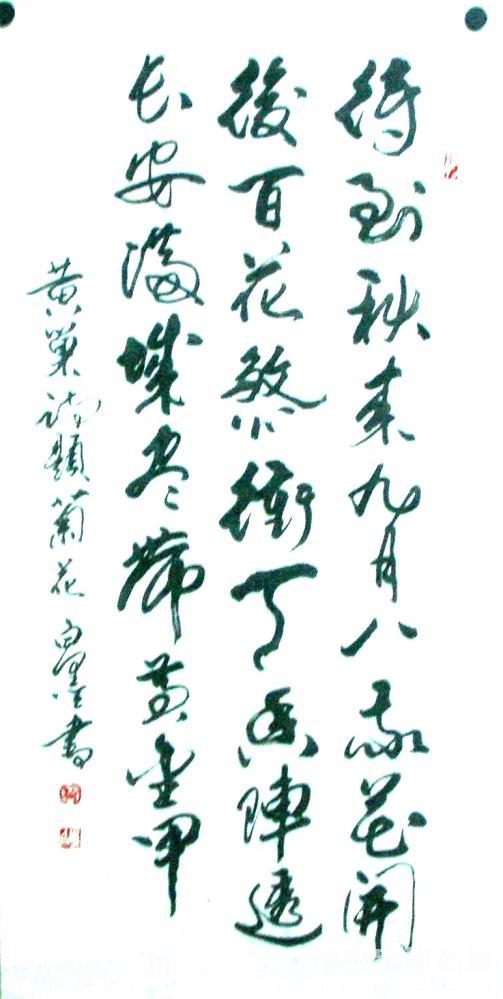 待到秋来九月八我花開
後百花煞衝天香陣透
长安滿城尽帶黄金甲
黄巢詩題菊花 書